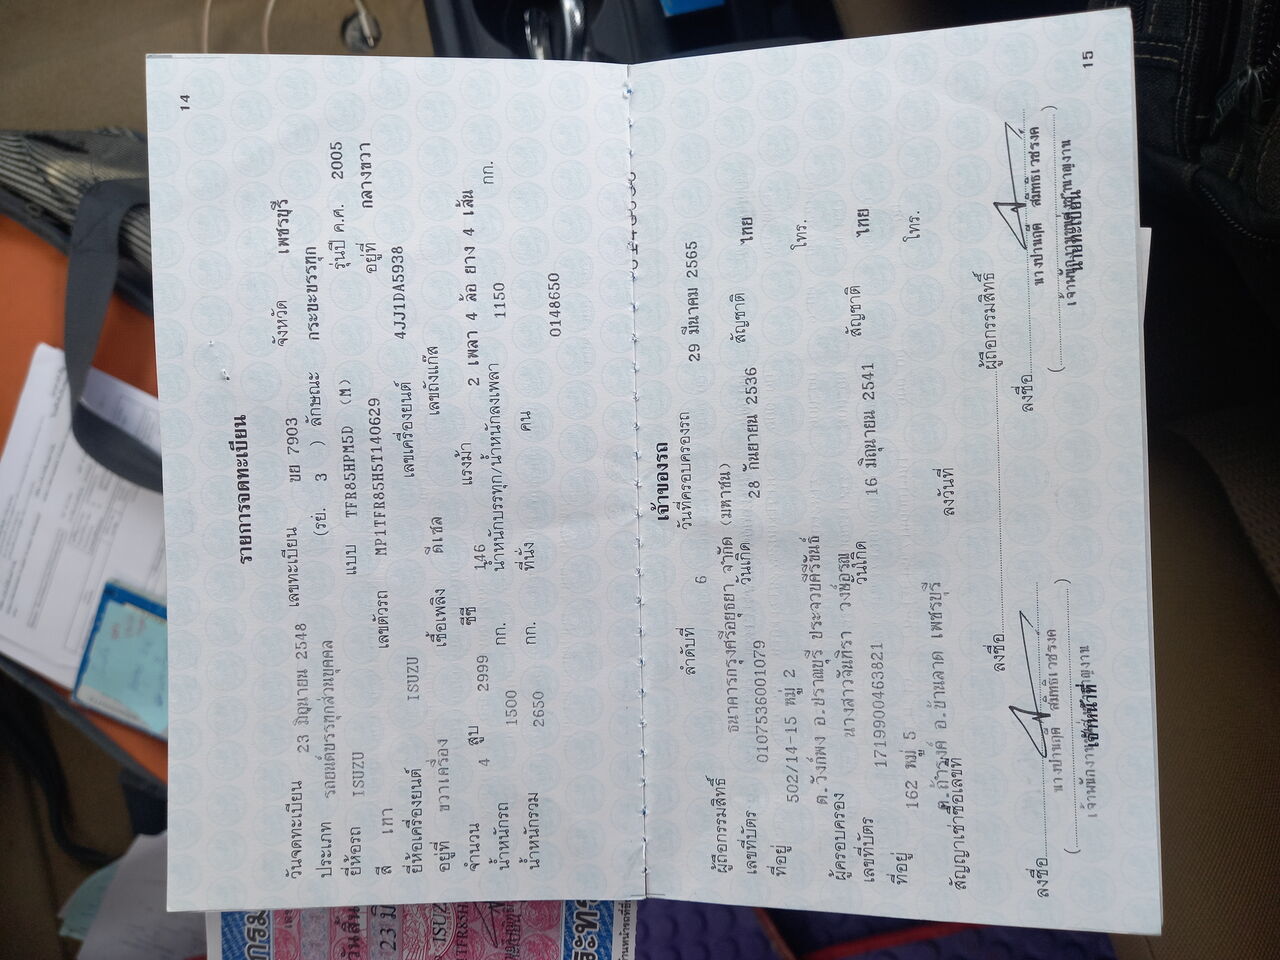 14
รายการจดทะเบียน
วันจดทะเบียน 23 มิถุนายน 2548 เลขทะเบียน ขย 7903 จังหวัด เพชรบุรี
ประเภท รถยนต์บรรทุกส่วนบุคคล (รย. 3 ) ลักษณะ กระบะบรรทุก
ยี่ห้อรถ ISUZU แบบ TFR85HPM5D (M) รุ่นปี ค.ศ. 2005
สี เทา เลขตัวรถ MP1TFR85H5T140629 อยู่ที่ กลางขวา
ยี่ห้อเครื่องยนต์ ISUZU เลขเครื่องยนต์ 4JJ1DA5938
อยู่ที่ ขวาเครื่อง เชื้อเพลิง ดีเซล เลขถังแก๊ส
จำนวน 4 สูบ 2999 ซีซี 146 แรงม้า 2 เพลา 4 ล้อ ยาง 4 เส้น
น้ำหนักรถ 1500 กก. น้ำหนักบรรทุก/น้ำหนักลงเพลา 1150 กก.
น้ำหนักรวม 2650 กก. ที่นั่ง คน
0148650
เจ้าของรถ
ลำดับที่ 6 วันที่ครอบครองรถ 29 มีนาคม 2565
ผู้ถือกรรมสิทธิ์ ธนาคารกรุงศรีอยุธยา จำกัด (มหาชน)
เลขที่บัตร 0107536001079 วันเกิด 28 กันยายน 2536 สัญชาติ ไทย
ที่อยู่ 502/14-15 หมู่ 2 โทร.
ต.วังก์พง อ.ปราณบุรี ประจวบคีรีขันธ์
ผู้ครอบครอง นางสาวจันทิรา วงษ์อรุญ
เลขที่บัตร 1719900463821 วันเกิด 16 มิถุนายน 2541 สัญชาติ ไทย
ที่อยู่ 162 หมู่ 5 โทร.
ต.ถ้ำรงค์ อ.บ้านลาด เพชรบุรี
สัญญาเช่าซื้อเลขที่ ลงวันที่
ลงชื่อ ผู้ถือกรรมสิทธิ์
ลงชื่อ ลงชื่อ
นางปานฤดี สมิทธิเวชรงค นางปานฤดี สมิทธิเวชรงค
( ) ( )
เจ้าหน้าที่ นายทะเบียน
15
23 มิ
ISUZ
TFR85H